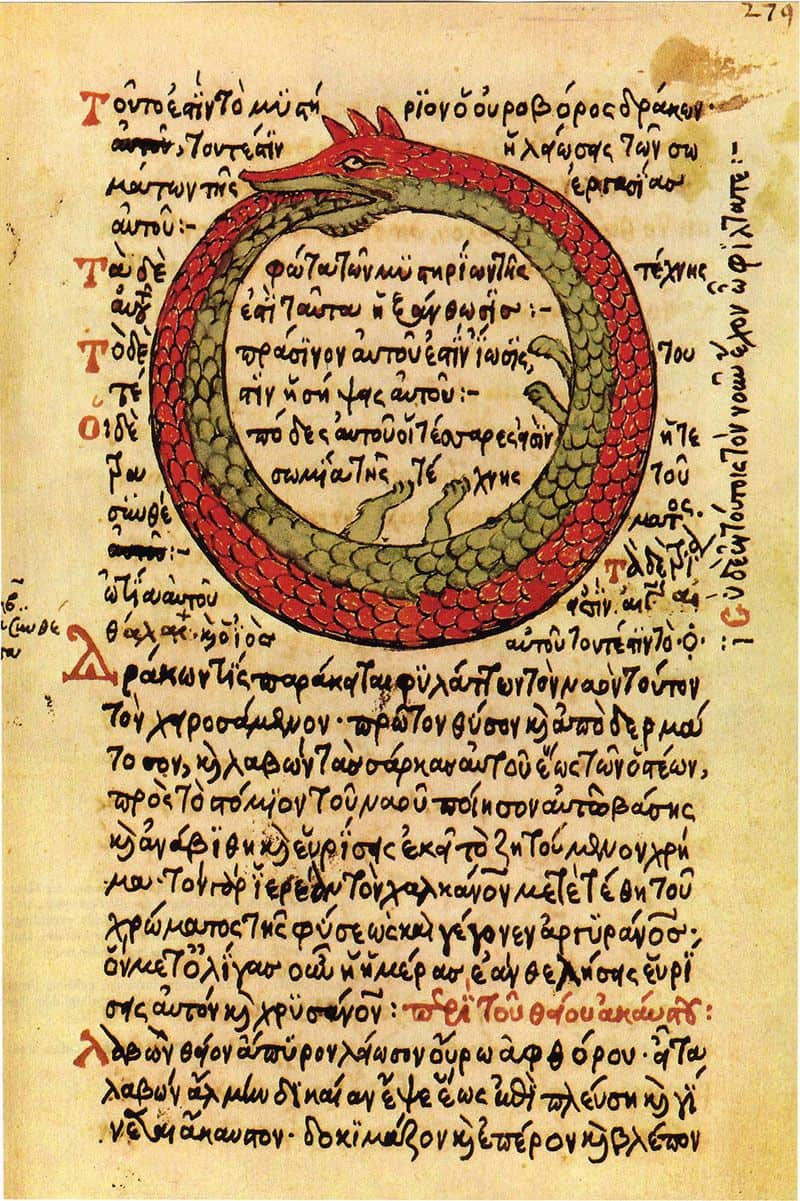 279
Τοῦτο ἐστὶν τὸ μυστήριον ὁ οὐροβόρος δράκων·
τουτέστιν ἡ λείωσης τῶν σω
μάτων τῆς ἐργασίας
αὐτοῦ :-
Τὰ δὲ φῶτα τῶν μυστηρίων τῆς τέχνης
ἐστὶ ταῦτα ἡ ξάνθωσις :-
Τὸ δὲ πράσινον αὐτοῦ ἐστὶν ἴωσις, του
τέ στιν ἡ σήψης αὐτοῦ :-
Οἱ δὲ πόδες αὐτοῦ οἱ τέσσαρες εἰσὶν ἡ τε
τρα σωμία τῆς τέχνης τοῦ
συνθέ ματος.
Τὰ δὲ τρία
ὠτία αὐτοῦ
αὐτοῦ τουτέστιν τὸ
Δράκων τὶς παράκειται φυλάττων τὸν ναὸν τοῦτον
τὸν χειροσάμενον· πρῶτον θύσον κὲ ἀποδερμά
τοσον, κὲ λαβὼν τὰς σάρκας αὐτοῦ ἕως τῶν ὀστέων,
πρὸς τὸ στόμιον τοῦ ναοῦ ποίησον αὐτῶ βάσης
κὲ ἀνάβιθη κὲ εὑρίσης ἐκεῖ τὸ ζητούμενον χρῆ
μα· τὸν γὰρ ἱερέα τὸν χαλκάνον μετετέθη τοῦ
χρώματος τῆς φύσεως καὶ γέγονεν ἀργυράνος·
ὃν μετ ὀλίγας οὖν ἡμέρας ἐὰν θελήσης εὑρί
σης αὐτὸν κὲ χρυσάνον : περὶ τοῦ θείου ἀκαύστου :
Λαβὼν θεῖον ἄπυρον λείωσον οὔρω ἀφθόρου· εἶτα
λαβὼν ἅλμην δικαίαν ἕψε ἕως ἐπιπλεύση κὲ γί
νεται ἄκαυστον· δοκίμαζον κὲ ἔπερον κὲ βλέπον